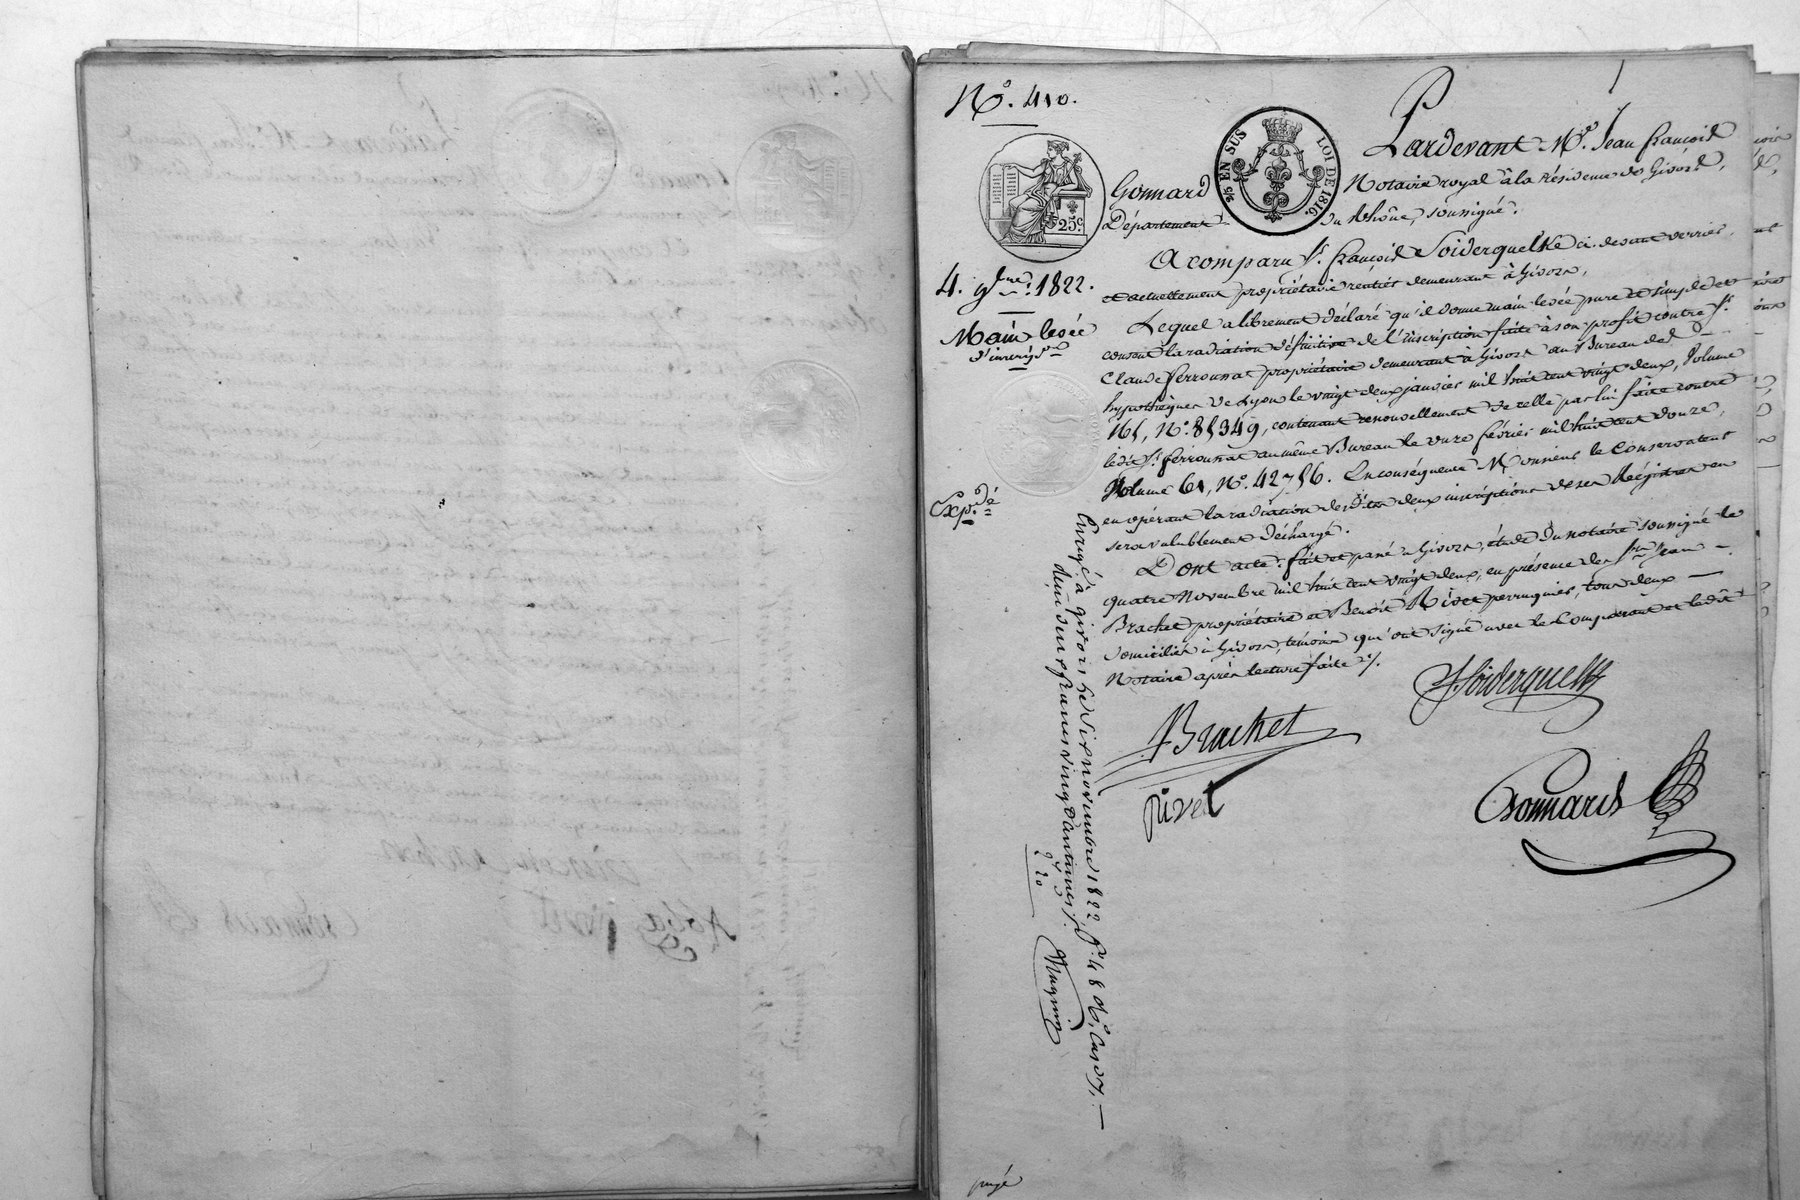 N.º 410.
Pardevant M.e Jean françois
Gonnard Notaire royal à la résidence de Givors,
Département du Rhône, soussigné.
25c
2/5 EN SUS
LOI DE 1816.
4. 9bre 1822.
Main levée
d'inscrip.on
Exp.dié
A comparu S.r françois Soiderquelke ci-devant verrier,
et actuellement propriétaire rentier demeurant à Givors,
Lequel a librement déclaré qu'il donne main levée pure et simple et
consent la radiation définitive de l'inscription faite à son profit contre S.r
Claude ferrounat propriétaire demeurant à Givors au Bureau des
hypothèques de Lyon le vingt deux janvier mil huit cent vingt deux, Volume
161, N.º 81349, contenant renouvellement de celle par lui faite contre
ledit S.r ferrounat au même Bureau le onze février mil huit cent douze,
Volume 61, N.º 42716. En conséquence Monsieur le Conservateur
en opérant la radiation desdites deux inscriptions de ses Régistres en
sera valablement déchargé.
Dont acte: fait et passé à Givors, étude du notaire soussigné le
quatre Novembre mil huit cent vingt deux, en présence des S.rs Jean
Brachet propriétaire et Benoît Rivet perruquier, tous deux
domiciliés à Givors, témoins qui ont signé avec le Comparant et ledit
Notaire après lecture faite ./.
f Soiderquelk
Brachet
Rivet
Gonnard
Enregé. à givors le six novembre 1822, f.º 48 R.º, Case 7,
deux francs vingt centimes ./.
2 20